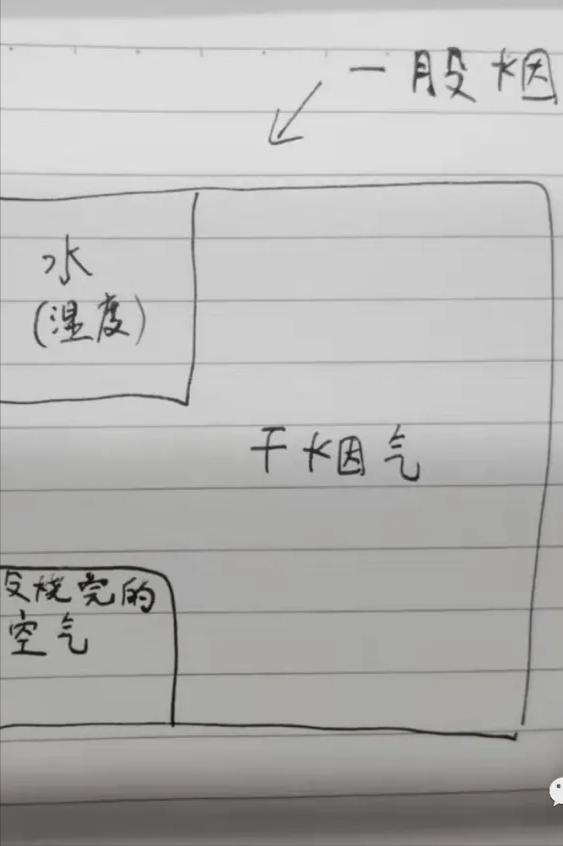 一股烟
水
(湿度)
干烟气
烧完的
空气